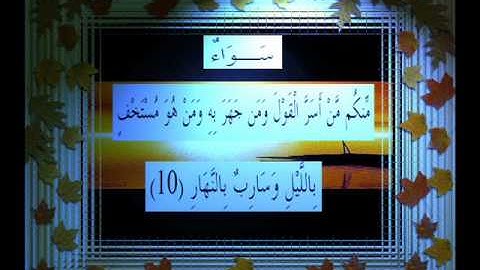 سَـــوَاءٌ
مِّنكُم مَّنْ أَسَرَّ الْقَوْلَ وَمَن جَهَرَ بِهِ وَمَنْ هُوَ مُسْتَخْفٍ
بِاللَّيْلِ وَسَارِبٌ بِالنَّهَارِ (10)